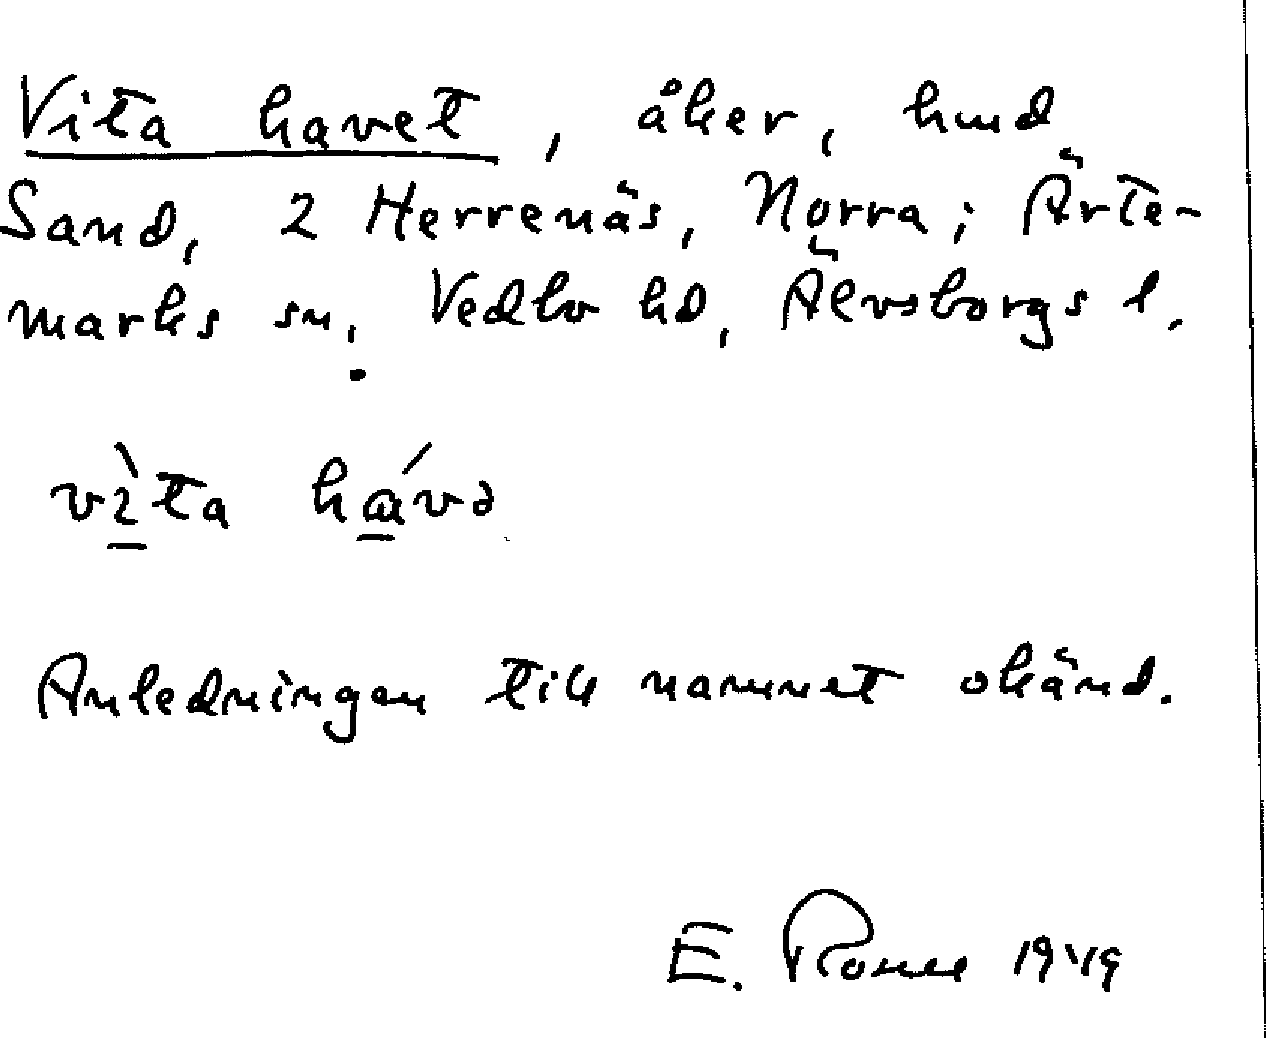 Vita havet, åker, hmd
Sand, 2 Herrenäs, Norra; Ärte-
marks sn, Vedbo hd, Älvsborgs l.
vìta hɑ́və
Anledningen till namnet okänd.
E. 1949